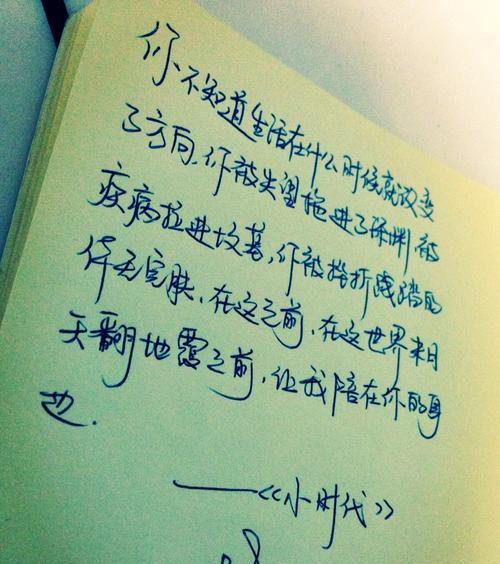 你不知道生活在什么时候就改变
了方向,你被失望拖进了深渊,被
疾病拉进坟墓,你被挫折践踏的
体无完肤,在这之前,在这世界末日
天翻地覆之前,让我陪在你的身
边.
——《小时代》